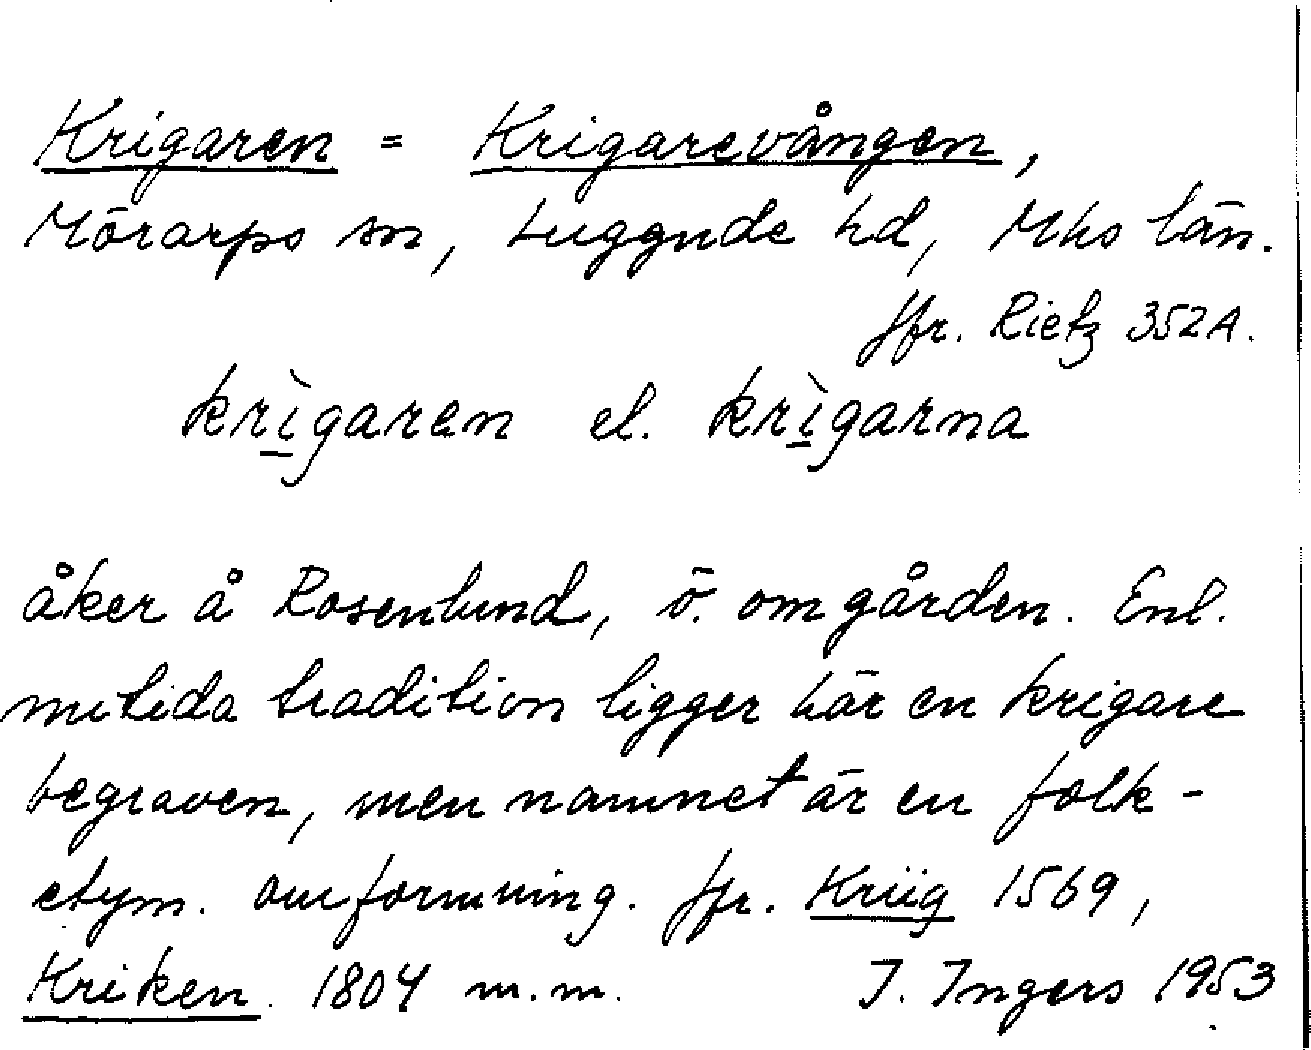 Krigaren = Krigarevången,
Mörarps sn, Luggude hd, Mhs län.
Jfr. Rietz 352A.
krìgaren el. krìgarna
åker å Rosenlund, ö. om gården. Enl.
nutida tradition ligger här en krigare
begraven, men namnet är en folk-
etym. omformning. Jfr. Kriig 1569,
Kriken 1804 m.m. I. Ingers 1953